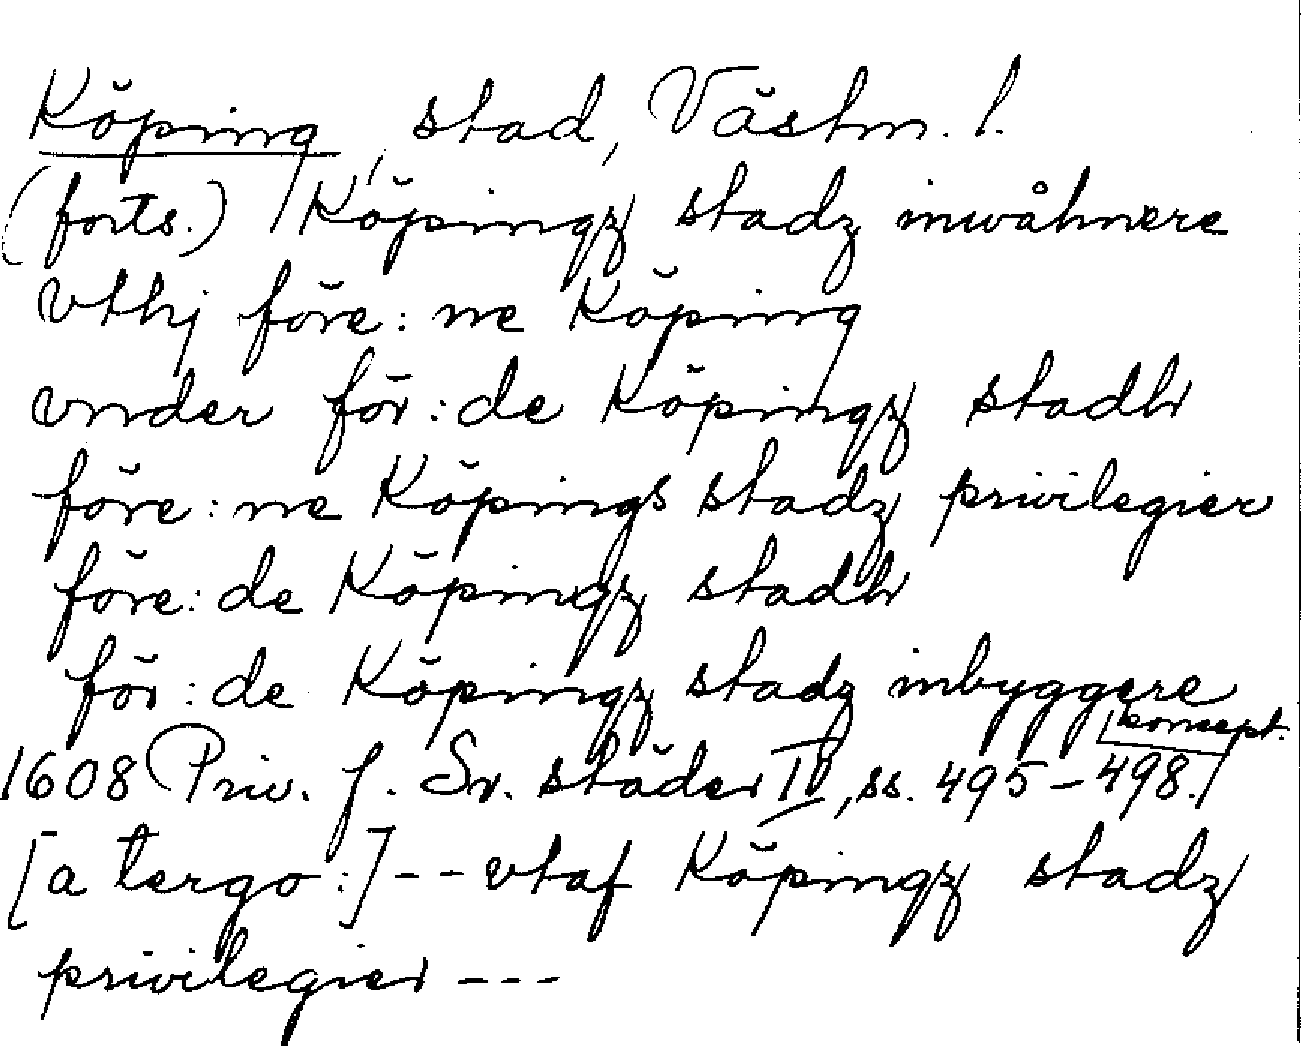 Köping, stad, Västm. l.
(forts.) Köpingz stadz inwåhnere
vthj före:ne Köping
vnder för:de Köpingz stadh
före:ne Köpings stadz privilegier
före:de Köpingz stadh
för:de Köpingz stadz inbyggere
koncept.
1608 Priv. f. Sv. städer IV, ss. 495-498.
[a tergo:] -- vtaf Köpingz stadz
privilegier ---